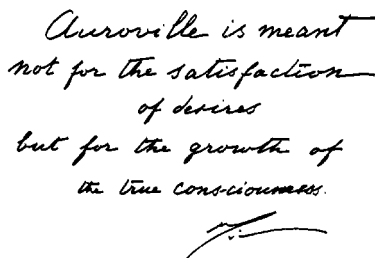 Auroville is meant
not for the satisfaction
of desires
but for the growth of
the true consciousness.